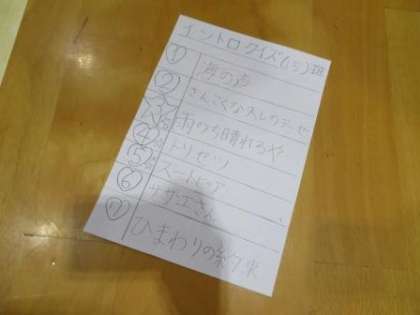 イントロクイズ(5)班
① 海の声
② ざんこくな天しのテーゼ
③ 雨のち晴れるや
④ トリセツ
⑤ スートピア
⑥ サザエさん
⑦ ひまわりの約束